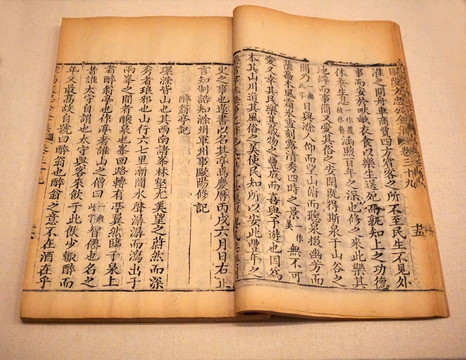 卷三十九
十五
淮之間舟車商賈四方賓客之所不至民生不見外
事而安於畎畝衣食以樂生送死而孰知上之功德
休養生息涵煦百年之深也修之來此樂其
地僻而事簡又愛其俗之安閑既得斯泉於山谷之
間乃日與滁人仰而望山俯而聽泉掇幽芳而
蔭喬木風霜冰雪刻露清秀四時之景無不可
愛又幸其民樂其歲物之豐成而喜與予遊也因爲
本其山川道其風俗之美使民知所以安此豐年之
史之事也遂書以名其亭焉慶曆丙戌六月日右正
言知制誥知滁州軍州事歐陽修記
醉翁亭記
環滁皆山也其西南諸峯林壑尤美望之蔚然而深
秀者琅邪也山行六七里漸聞水聲潺潺而瀉出于
兩峯之間者釀泉也峯回路轉有亭翼然臨于泉上
者醉翁亭也作亭者誰山之僧曰智僊也名之
者誰太守自謂也太守與客來飲于此飲少輒醉而
年又最高故自號曰醉翁也醉翁之意不在酒在乎